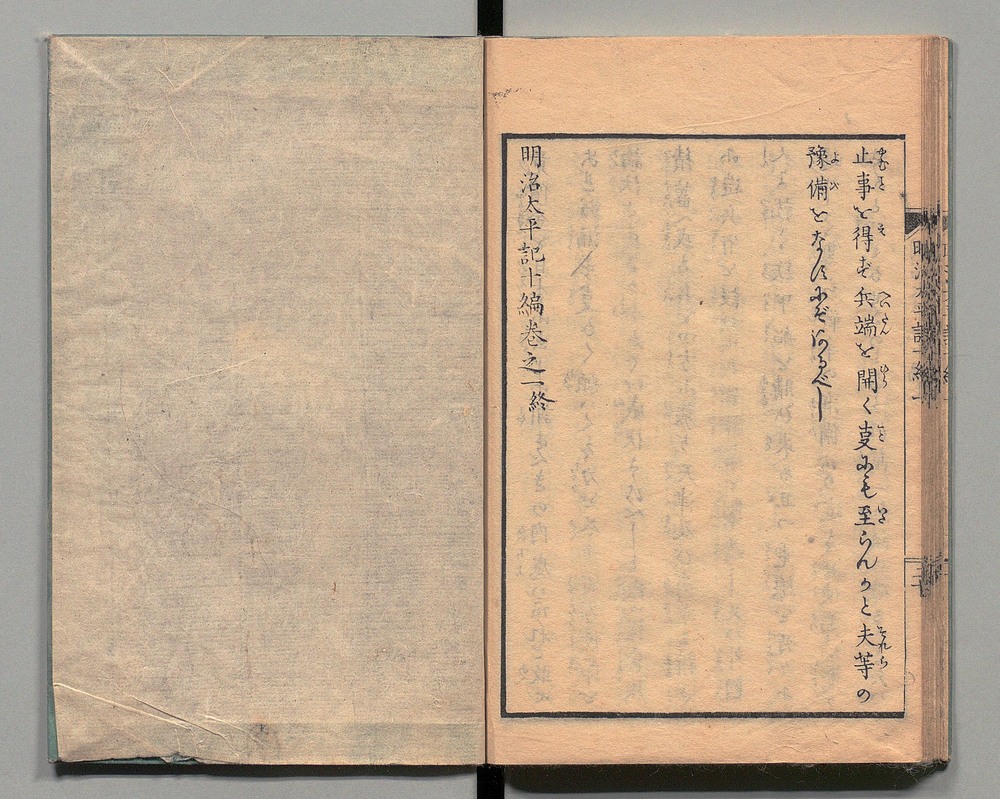 止事を得ず兵端を開く事にも至らんかと夫等の
豫備をなすにぞあるべし
明治太平記十編巻之一終